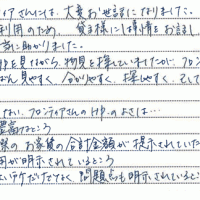 ィアさんには、大変お世話になりました。
利用のため、貸主様には事情をお話し
常に助かりました。
HPを見ながら、物見を探していましたが、フロン
ばん見やすく、分かりやすく、探しやすく、そして
ない、フロンティアさんのHPのよさは…
豊富なところ
際のお家賃の合計金額が提示されていた
用が明示されているところ
いいトコだけでなく、問題点も明示されているとこ